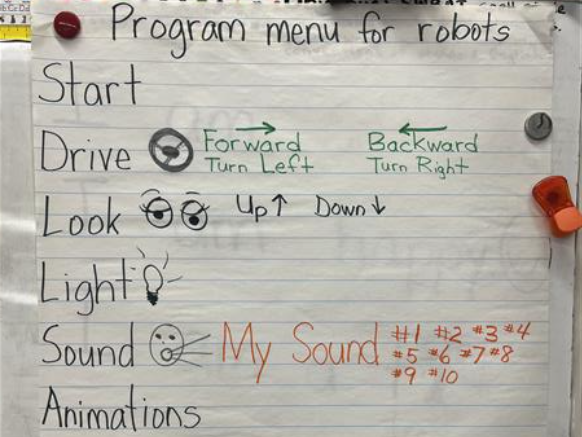 Program menu for robots
Start
Drive Forward Backward
Turn Left Turn Right
Look Up↑ Down↓
Light
Sound My Sound #1 #2 #3 #4
#5 #6 #7 #8
#9 #10
Animations